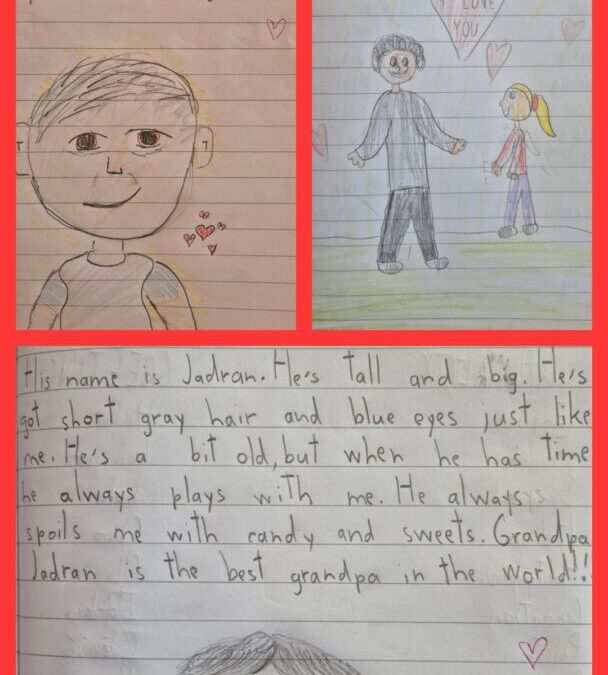 I LOVE
YOU
T
T
His name is Jadran. He's tall and big. He's
got short gray hair and blue eyes just like
me. He's a bit old, but when he has time
he always plays with me. He always
spoils me with candy and sweets. Grandpa
Jadran is the best grandpa in the world!!